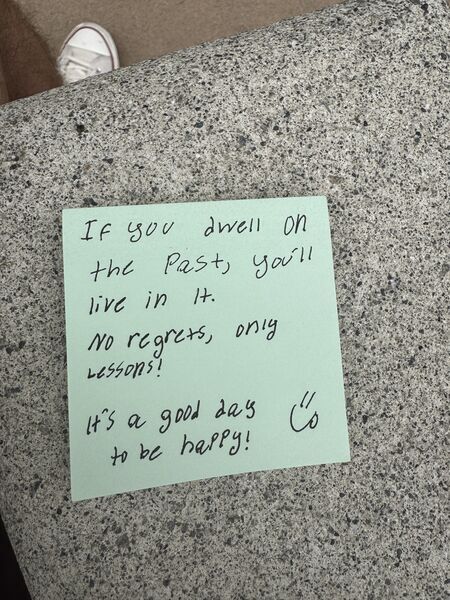 If you dwell on
the Past, you'll
live in it.
No regrets, only
Lessons!
It's a good day
to be happy!